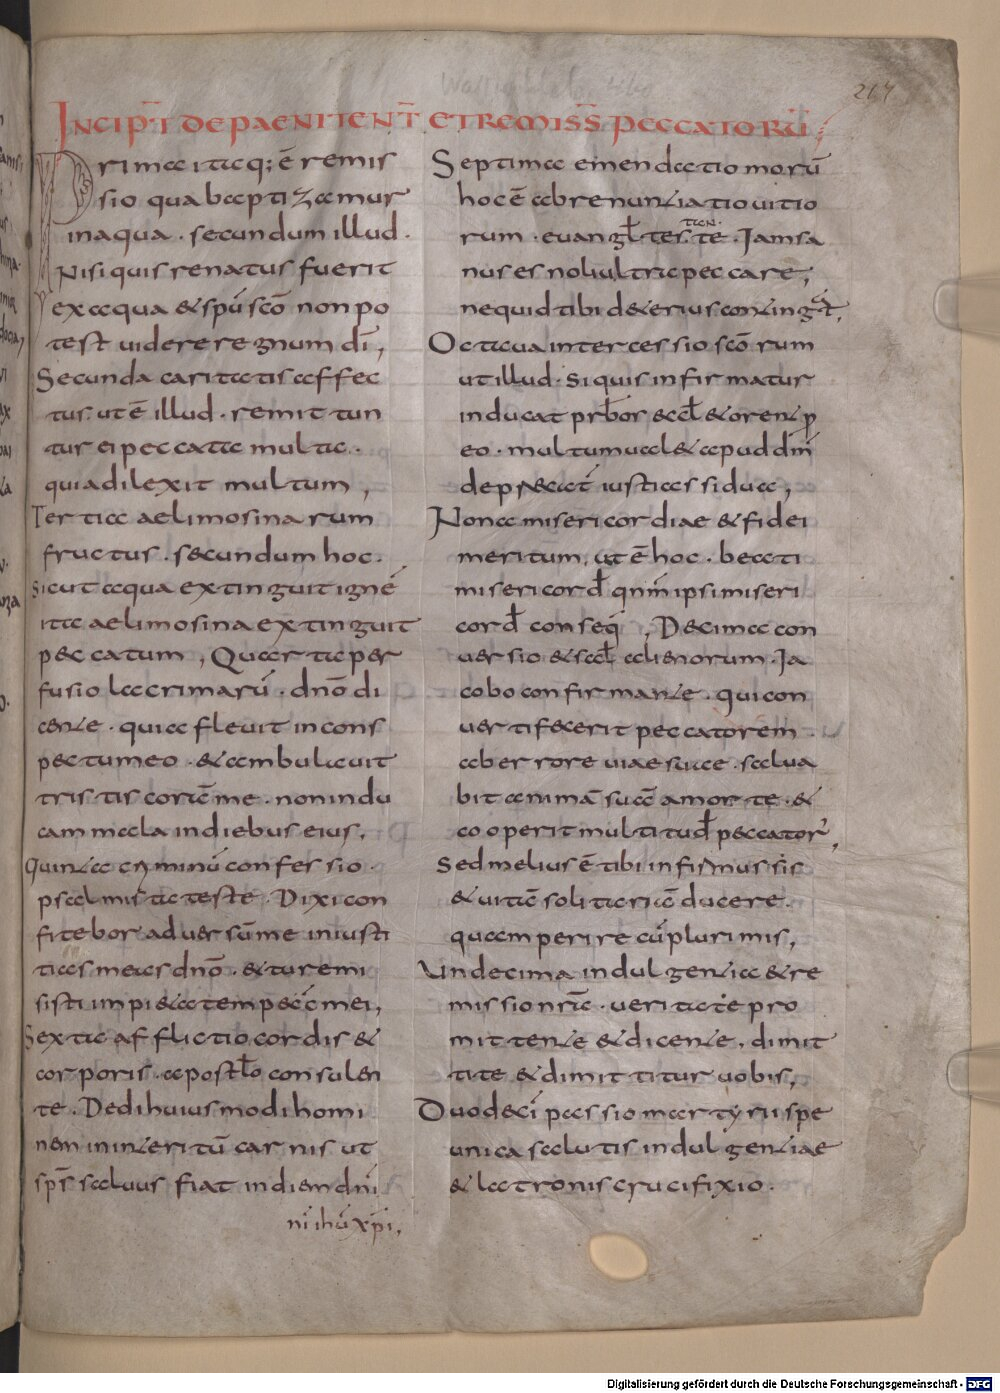 267
INCIPT̄ DE PAENITENT̄ ET REMISS̄ PECCATORŪ;
Prima itaq; ē remis
sio qua baptizamur
in aqua · secundum illud ·
Nisi quis renatus fuerit
ex aqua & sp̄u sc̄o non po
test uidere regnum dī,
Secunda caritatis affec
tus ut ē illud · remittun
tur ei peccata multa ·
quia dilexit multum,
Tertia aelimosinarum
fructus · secundum hoc ·
sicut aqua extinguit ignē
ita aelimosina extinguit
peccatum, Quarta per
fusio lacrimarū · dn̄o di
cente · quia fleuit in cons
pectu meo · & ambulauit
tristis coram me · non indu
cam mala in diebus eius,
Quinta criminū confessio ·
psalmista teste · Dixi con
fitebor aduersū me iniusti
tias meas dn̄o · & tu remi
sisti impi&atem peccc̄ mei,
Sexta afflictio cordis &
corporis · apostl̄o consulen
te · Dedi huiusmodi homi
nem in interitū carnis ut
sp̄s saluus fiat in diem dn̄i
n̄i ihū xp̄i,
Septima emendatio morū
hoc ē abrenuntiatio uitio
rum · euangl̄ · tes tan te · Iam sa
nus es noli ultra peccare,
ne quid tibi d&erius contingat,
Octaua intercessio sc̄orum
ut illud · si quis infirmatur
inducat prb̄or eccl̄ & orent p̱
eo · multum ual& apud dn̄m
deprecat̄ iusti assidua,
Nona misericordiae & fidei
meritum, ut ē hoc · beati
misericord̄ qn̄m ipsi miseri
cord̄ conseq̄, Decima con
uersio & sal̄ alienorum · Ia
cobo confirmante · qui con
uerti fecerit peccatorem
ab errore uiae suae · salua
bit animā suā a morte · &
cooperit multitud̄ peccator̄,
Sed melius ē tibi infirmus sis
& uitā solitariā ducere ·
quam perire cū plurimis,
Undecima indulgentia & re
missio nr̄a · ueritate pro
mittente & dicente · dimit
tite & dimittitur uobis,
Duodeci passio martyrii spe
unica salutis indulgentiae
& latronis crucifixio ·
Digitalisierung gefördert durch die Deutsche Forschungsgemeinschaft - DFG